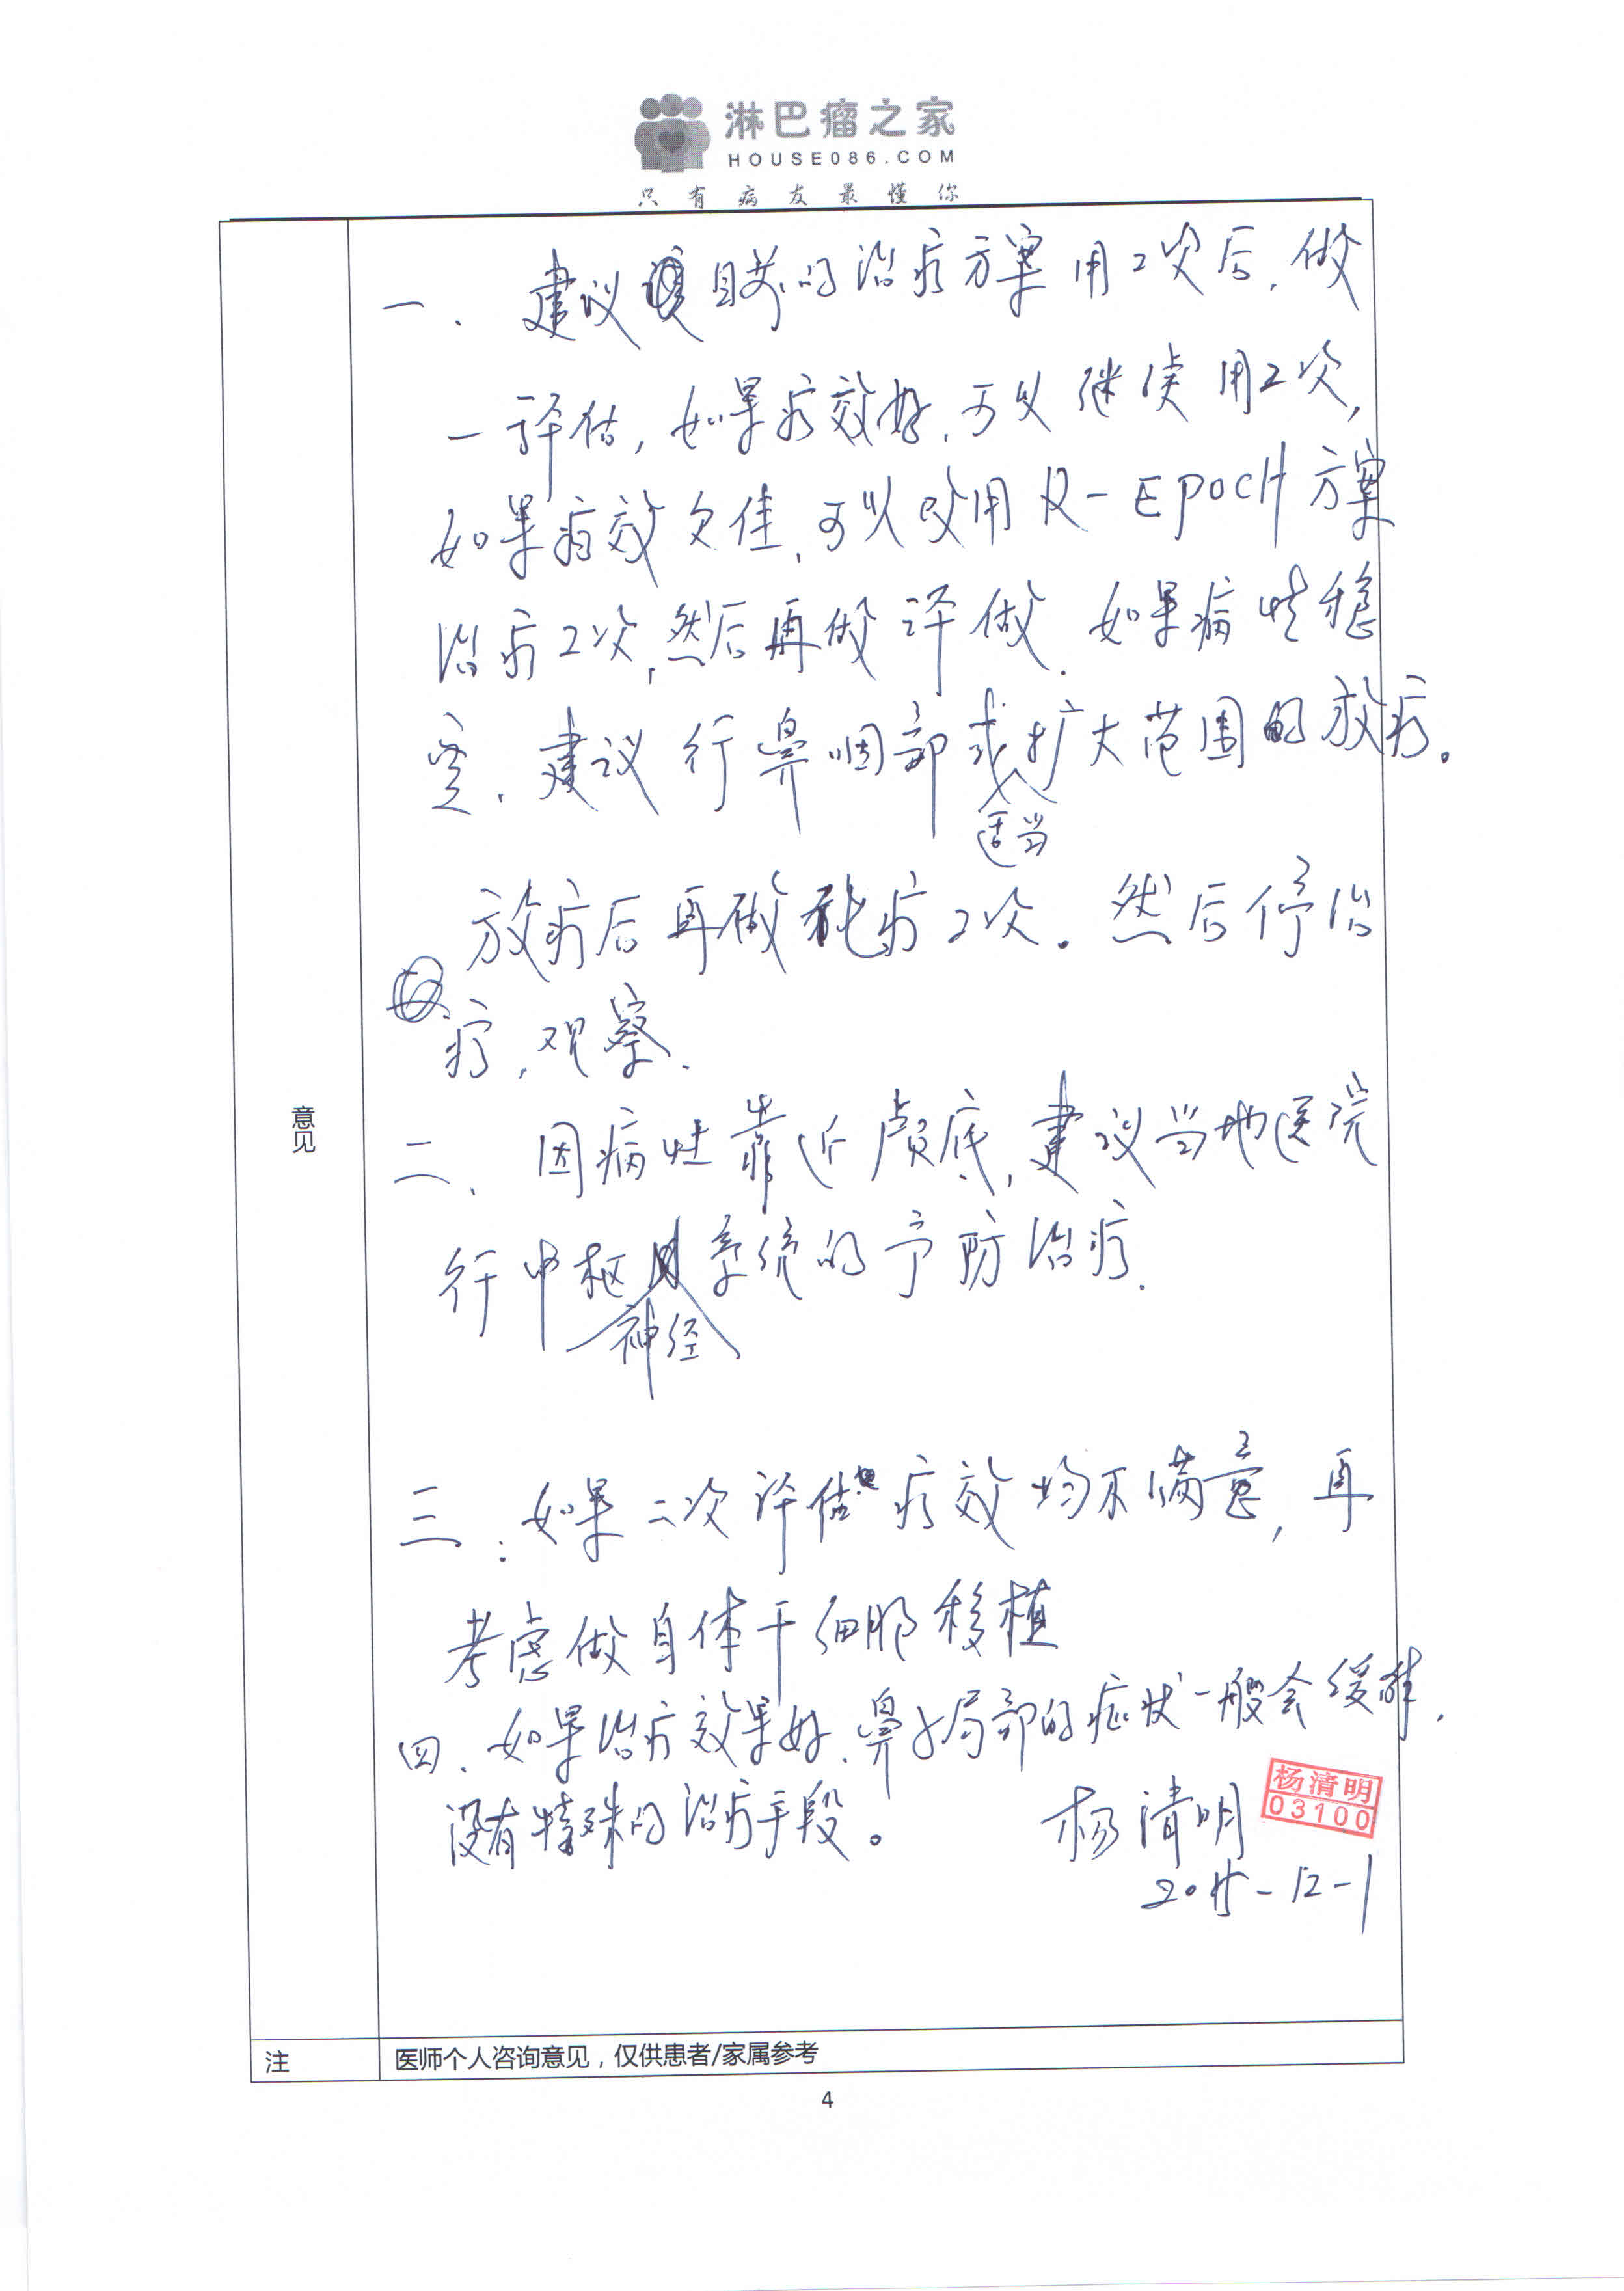 淋巴瘤之家
HOUSE086.COM
只有病友最懂你
一、建议目前的治疗方案用2次后，做
一评估，如果疗效好，可以继续用2次，
如果疗效欠佳，可以改用R-EPOCH方案
治疗2次，然后再做评做．如果病灶稳
定，建议行鼻咽部或适当扩大范围的放疗。
放疗后再做化疗2次。然后停治
疗，观察．
意见
二、因病灶靠近颅底，建议当地医院
行中枢神经系统的予防治疗．
三：如果二次评估疗效均不满意，再
考虑做自体干细胞移植
四、如果治疗效果好，鼻子局部的症状一般会缓解．
没有特殊的治疗手段。
杨清明
杨清明
03100
2015-12-1
注 医师个人咨询意见，仅供患者/家属参考
4